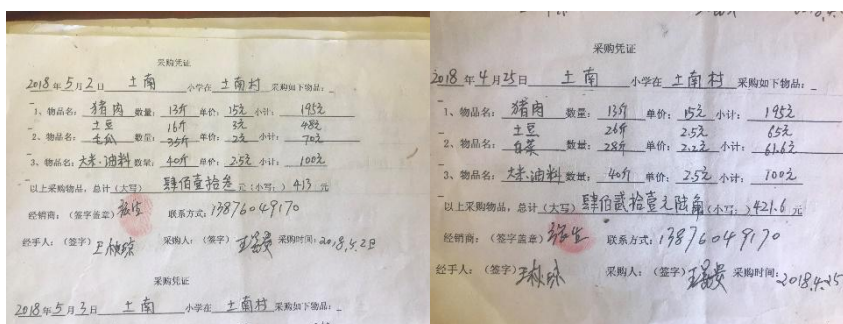 采购凭证
2018年5月2日 土南 小学在 土南村 采购如下物品:
1、物品名: 猪肉 数量: 13斤 单价: 15元 小计: 195元
土豆 16斤 3元 48元
2、物品名: 毛瓜 数量: 35斤 单价: 2元 小计: 70元
3、物品名: 大米·油料 数量: 40斤 单价: 2.5元 小计: 100元
以上采购物品,总计(大写) 肆佰壹拾叁 元(小写:) 413 元
经销商:(签字盖章) 联系方式: 13876049170
经手人:(签字) 采购人:(签字) 采购时间: 2018.5.2日
采购凭证
2018年5月3日 土南 小学在 土南村 采购如下物品:
采购凭证
2018年4月25日 土南 小学在 土南村 采购如下物品:
1、物品名: 猪肉 数量: 13斤 单价: 15元 小计: 195元
土豆 26斤 2.5元 65元
2、物品名: 白菜 数量: 28斤 单价: 2.2元 小计: 61.6元
3、物品名: 大米·油料 数量: 40斤 单价: 2.5元 小计: 100元
以上采购物品,总计(大写) 肆佰贰拾壹元陆角 (小写:) 421.6 元
经销商:(签字盖章) 联系方式: 13876049170
经手人:(签字) 采购人:(签字) 采购时间: 2018.4.25